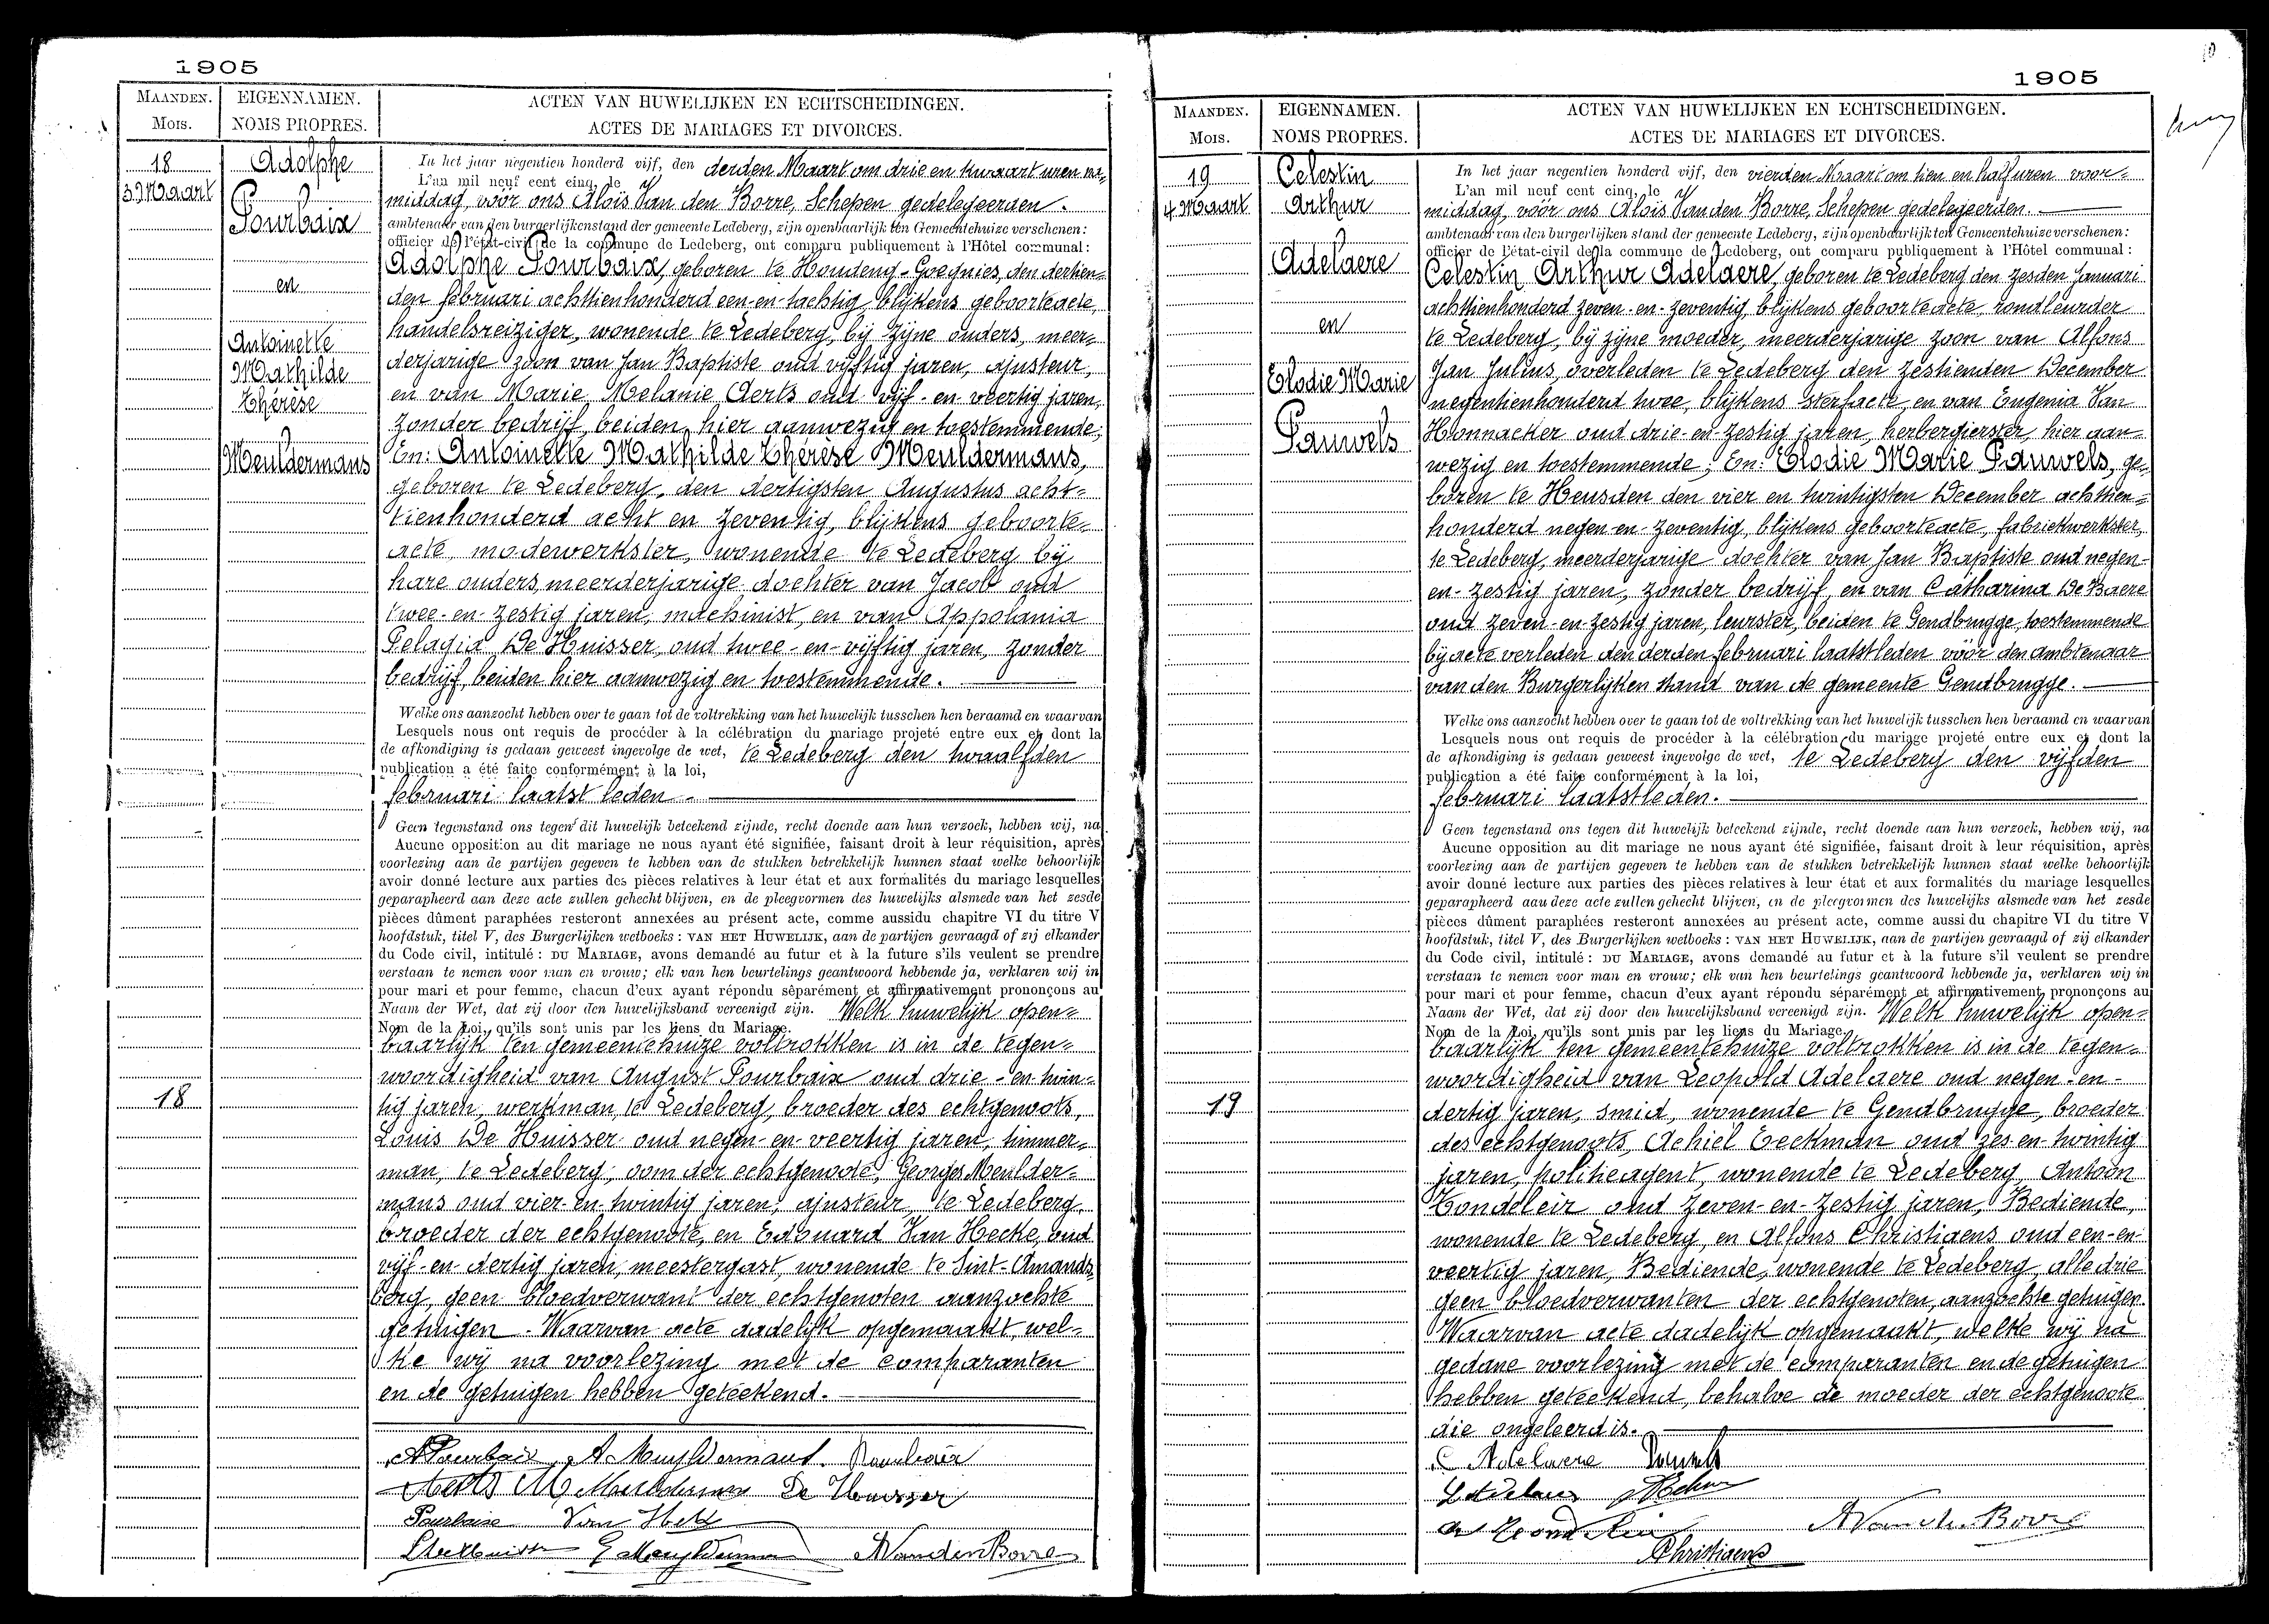 1905
MAANDEN. EIGENNAMEN. ACTEN VAN HUWELIJKEN EN ECHTSCHEIDINGEN.
MOIS. NOMS PROPRES. ACTES DE MARIAGES ET DIVORCES.
18
3 Maart
Adolphe
Pourbaix
en
Antoinette
Mathilde
Thérèse
Meuldermans
In het jaar negentien honderd vijf, den derden Maart om drie en kwaart uren na-
L'an mil neuf cent cinq, le
middag, vóór ons Aloïs Van den Borre, Schepen gedelegeerden.
ambtenaar van den burgerlijkenstand der gemeente Ledeberg, zijn openbaarlijk ten Gemeentehuize verschenen:
officier de l'état-civil de la commune de Ledeberg, ont comparu publiquement à l'Hôtel communal:
Adolphe Pourbaix, geboren te Houdeng-Goegnies, den dertien-
den februari achttienhonderd een-en-tachtig, blijkens geboorteacte,
handelsreiziger, wonende te Ledeberg, bij zijne ouders, meer-
derjarige zoon van Jan Baptiste oud vijftig jaren, ajusteur,
en van Marie Melanie Aerts oud vijf-en-veertig jaren,
zonder bedrijf, beiden hier aanwezig en toestemmende;
En: Antoinette Mathilde Thérèse Meuldermans,
geboren te Ledeberg, den dertigsten Augustus acht-
tienhonderd acht en zeventig, blijkens geboorte-
acte, modewerkster, wonende te Ledeberg bij
hare ouders, meerderjarige dochter van Jacob oud
twee-en-zestig jaren, machinist, en van Appolonia
Pelagia De Huisser, oud twee-en-vijftig jaren, zonder
bedrijf, beiden hier aanwezig en toestemmende.
Welke ons aanzocht hebben over te gaan tot de voltrekking van het huwelijk tusschen hen beraamd en waarvan
Lesquels nous ont requis de procéder à la célébration du mariage projeté entre eux et dont la
de afkondiging is gedaan geweest ingevolge de wet, te Ledeberg den twaalfden
publication a été faite conformément à la loi,
februari laatst leden.
Geen tegenstand ons tegen dit huwelijk beteekend zijnde, recht doende aan hun verzoek, hebben wij, na
Aucune opposition au dit mariage ne nous ayant été signifiée, faisant droit à leur réquisition, après
voorlezing aan de partijen gegeven te hebben van de stukken betrekkelijk hunnen staat welke behoorlijk
avoir donné lecture aux parties des pièces relatives à leur état et aux formalités du mariage lesquelles
geparapheerd aan deze acte zullen gehecht blijven, en de pleegvormen des huwelijks alsmede van het zesde
pièces dûment paraphées resteront annexées au présent acte, comme aussi du chapitre VI du titre V
hoofdstuk, titel V, des Burgerlijken wetboeks: VAN HET HUWELIJK, aan de partijen gevraagd of zij elkander
du Code civil, intitulé: DU MARIAGE, avons demandé au futur et à la future s'ils veulent se prendre
verstaan te nemen voor man en vrouw; elk van hen beurtelings geantwoord hebbende ja, verklaren wij in
pour mari et pour femme, chacun d'eux ayant répondu séparément et affirmativement prononçons au
Naam der Wet, dat zij door den huwelijksband vereenigd zijn. Welk huwelijk open-
Nom de la Loi, qu'ils sont unis par les liens du Mariage.
baarlijk ten gemeentehuize voltrokken is in de tegen-
woordigheid van August Pourbaix oud drie-en-twin-
18
tig jaren, werkman, te Ledeberg, broeder des echtgenoots,
Louis De Huisser oud negen-en-veertig jaren, timmer-
man, te Ledeberg, oom der echtgenoote, Georges Meulder-
mans oud vier-en-twintig jaren, ajusteur, te Ledeberg,
broeder der echtgenoote, en Edouard Van Hecke, oud
vijf-en-dertig jaren, meestergast, wonende te Sint-Amands-
berg, geen bloedverwant der echtgenoten aanzochte
getuigen. Waarvan acte dadelijk opgemaakt, wel-
ke wij na voorlezing met de comparanten
en de getuigen hebben geteekend.
A Pourbaix A Muyldermans. Pourbaix
Aerts M Meuldermans De Huisser
Pourbaix Van Heck
L De Huisser G Muyldermans A Van den Borre
1905
MAANDEN. EIGENNAMEN. ACTEN VAN HUWELIJKEN EN ECHTSCHEIDINGEN.
MOIS. NOMS PROPRES. ACTES DE MARIAGES ET DIVORCES.
19
4 Maart
Celestin
Arthur
Adelaere
en
Elodie Marie
Pauwels
In het jaar negentien honderd vijf, den vierden Maart om tien en half uren voor-
L'an mil neuf cent cinq, le
middag, vóór ons Aloïs Van den Borre, Schepen gedelegeerden.
ambtenaar van den burgerlijken stand der gemeente Ledeberg, zijn openbaarlijk ten Gemeentehuize verschenen:
officier de l'état-civil de la commune de Ledeberg, ont comparu publiquement à l'Hôtel communal:
Celestin Arthur Adelaere, geboren te Ledeberg den zesden Januari
achttienhonderd zeven-en-zeventig, blijkens geboorteacte, rondleurder
te Ledeberg, bij zijne moeder, meerderjarige zoon van Alfons
Jan Julius, overleden te Ledeberg den zestienden December
negentienhonderd twee, blijkens sterfacte, en van Eugenia Van
Honnacker oud drie-en-zestig jaren, herbergierster, hier aan-
wezig en toestemmende; En: Elodie Marie Pauwels, ge-
boren te Heusden den vier en twintigsten December achttien-
honderd negen-en-zeventig, blijkens geboorteacte, fabriekwerkster,
te Ledeberg, meerderjarige dochter van Jan Baptiste oud negen-
en-zestig jaren, zonder bedrijf, en van Catharina De Baere
oud zeven-en-zestig jaren, leurster, beiden te Gendbrugge, toestemmende
bij acte verleden den derden februari laatstleden vóór den ambtenaar
van den Burgerlijken stand van de gemeente Gendbrugge.
Welke ons aanzocht hebben over te gaan tot de voltrekking van het huwelijk tusschen hen beraamd en waarvan
Lesquels nous ont requis de procéder à la célébration du mariage projeté entre eux et dont la
de afkondiging is gedaan geweest ingevolge de wet, te Ledeberg den vijfden
publication a été faite conformément à la loi,
februari laatstleden.
Geen tegenstand ons tegen dit huwelijk beteekend zijnde, recht doende aan hun verzoek, hebben wij, na
Aucune opposition au dit mariage ne nous ayant été signifiée, faisant droit à leur réquisition, après
voorlezing aan de partijen gegeven te hebben van de stukken betrekkelijk hunnen staat welke behoorlijk
avoir donné lecture aux parties des pièces relatives à leur état et aux formalités du mariage lesquelles
geparapheerd aan deze acte zullen gehecht blijven, en de pleegvormen des huwelijks alsmede van het zesde
pièces dûment paraphées resteront annexées au présent acte, comme aussi du chapitre VI du titre V
hoofdstuk, titel V, des Burgerlijken wetboeks: VAN HET HUWELIJK, aan de partijen gevraagd of zij elkander
du Code civil, intitulé: DU MARIAGE, avons demandé au futur et à la future s'il veulent se prendre
verstaan te nemen voor man en vrouw; elk van hen beurtelings geantwoord hebbende ja, verklaren wij in
pour mari et pour femme, chacun d'eux ayant répondu séparément et affirmativement, prononçons au
Naam der Wet, dat zij door den huwelijksband vereenigd zijn. Welk huwelijk open-
Nom de la Loi, qu'ils sont unis par les liens du Mariage.
baarlijk ten gemeentehuize voltrokken is in de tegen-
woordigheid van Leopold Adelaere oud negen-en-
19
dertig jaren, smid, wonende te Gendbrugge, broeder
des echtgenoots, Achiel Eeckman oud zes-en-twintig
jaren, politieagent, wonende te Ledeberg, Antoon
Tondeleir oud zeven-en-zestig jaren, Bediende,
wonende te Ledeberg, en Alfons Christiaens oud een-en-
veertig jaren, Bediende, wonende te Ledeberg, alle drie
geen bloedverwanten der echtgenoten, aanzochte getuigen.
Waarvan acte dadelijk opgemaakt, welke wij na
gedane voorlezing met de comparanten en de getuigen
hebben geteekend, behalve de moeder der echtgenoote
die ongeleerd is.
C Adelaere Pauwels
L Adelaere
A Van den Borre
Christiaens